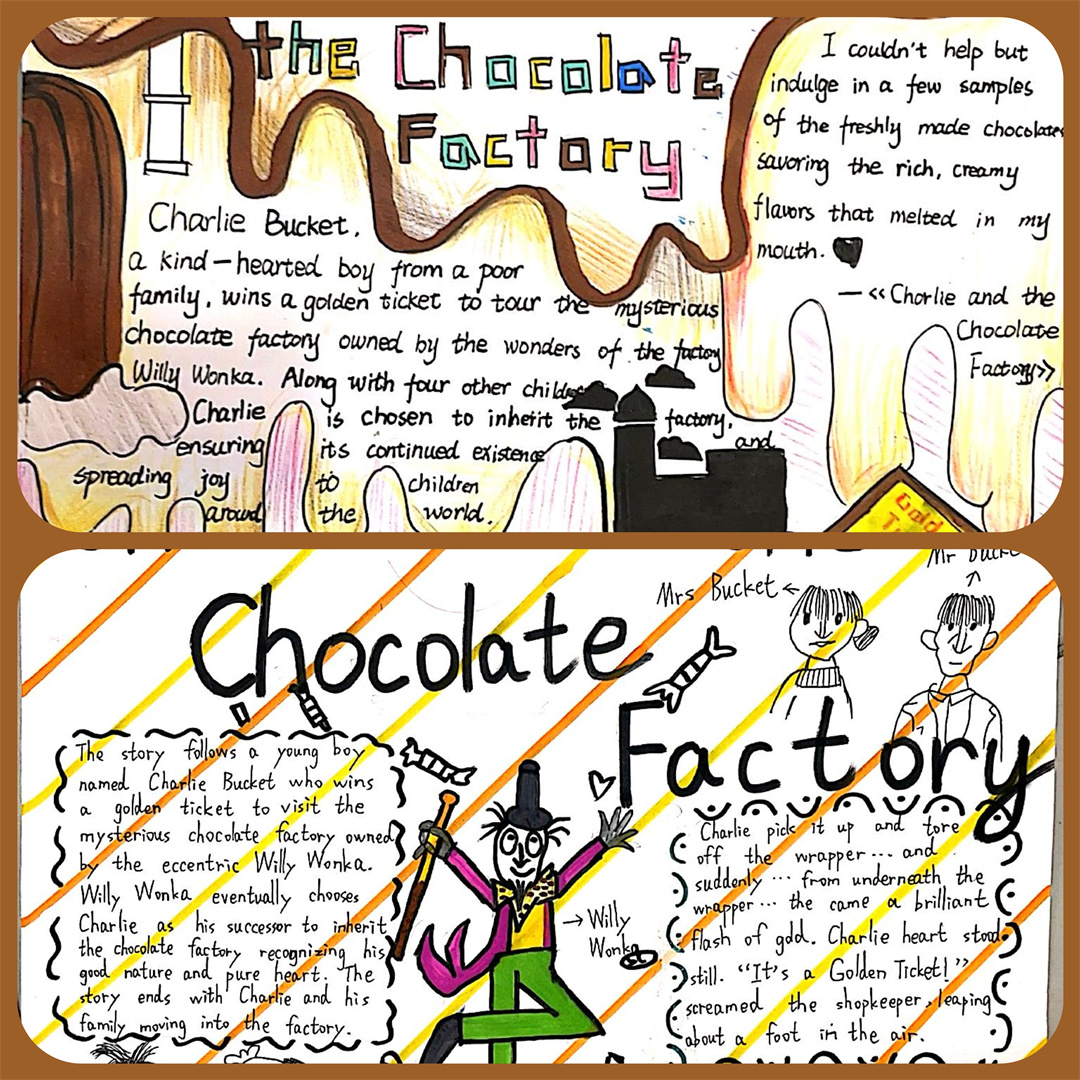 the Chocolate
Factory
Charlie Bucket,
a kind-hearted boy from a poor
family, wins a golden ticket to tour the mysterious
chocolate factory owned by the wonders of the factory
Willy Wonka. Along with four other
Charlie is chosen to inherit the factory,
ensuring its continued existence and
spreading joy to children
aroud the world.
I couldn't help but
indulge in a few samples
of the freshly made chocolates
savoring the rich, creamy
flavors that melted in my
mouth.
—<<Chorlie and the
Chocolate
Factory>>
Gold
Chocolate
Factory
Mrs Bucket
Mr
The story follows a young boy
named Charlie Bucket who wins
a golden ticket to visit the
mysterious chocolate factory owned
by the eccentric Willy Wonka.
Willy Wonka eventually chooses
Charlie as his successor to inherit
the chocolate factory recognizing his
good nature and pure heart. The
story ends with Charlie and his
family moving into the factory.
Willy
Wonka
Charlie pick it up and tore
off the wrapper... and
suddenly ... from underneath the
wrapper... the came a brilliant
flash of gdd. Charlie heart stood
still. "It's a Golden Ticket!"
screamed the shopkeeper, leaping
about a foot in the air.